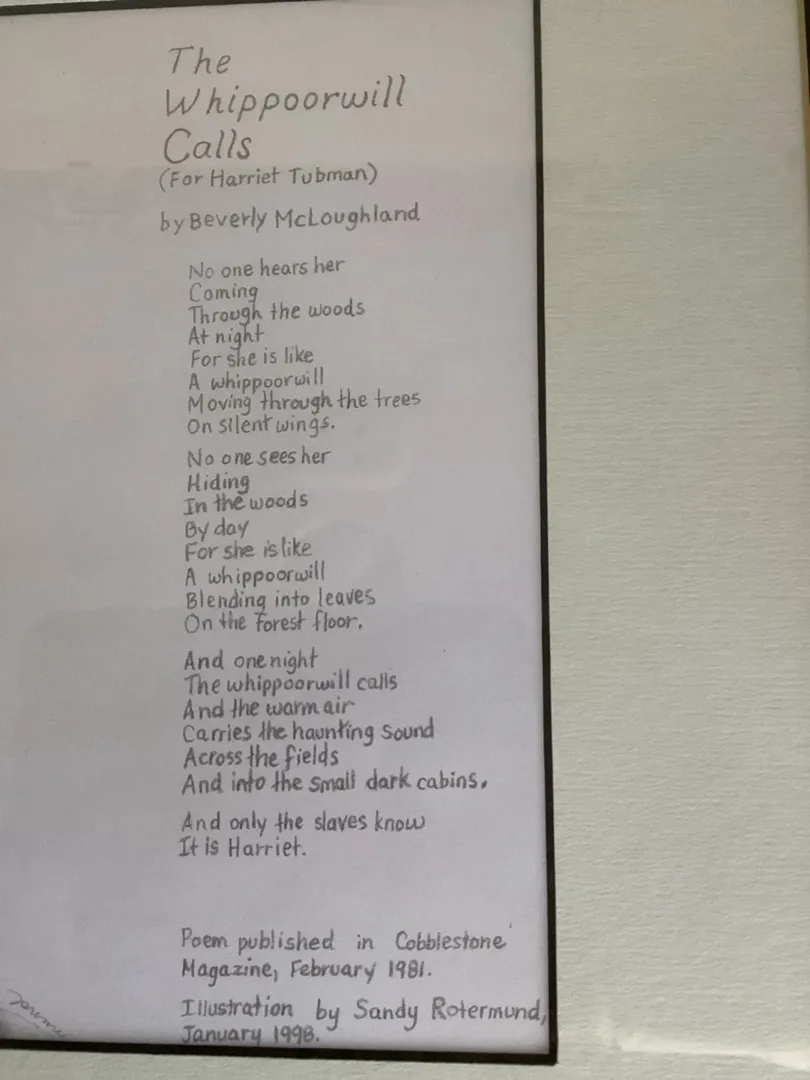 The
Whippoorwill
Calls
(For Harriet Tubman)
by Beverly McLoughland
No one hears her
Coming
Through the woods
At night
For she is like
A whippoorwill
Moving through the trees
On silent wings.
No one sees her
Hiding
In the woods
By day
For she is like
A whippoorwill
Blending into leaves
On the forest floor.
And one night
The whippoorwill calls
And the warm air
Carries the haunting sound
Across the fields
And into the small dark cabins.
And only the slaves know
It is Harriet.
Poem published in Cobblestone
Magazine, February 1981.
Illustration by Sandy Rotermund,
January 1998.